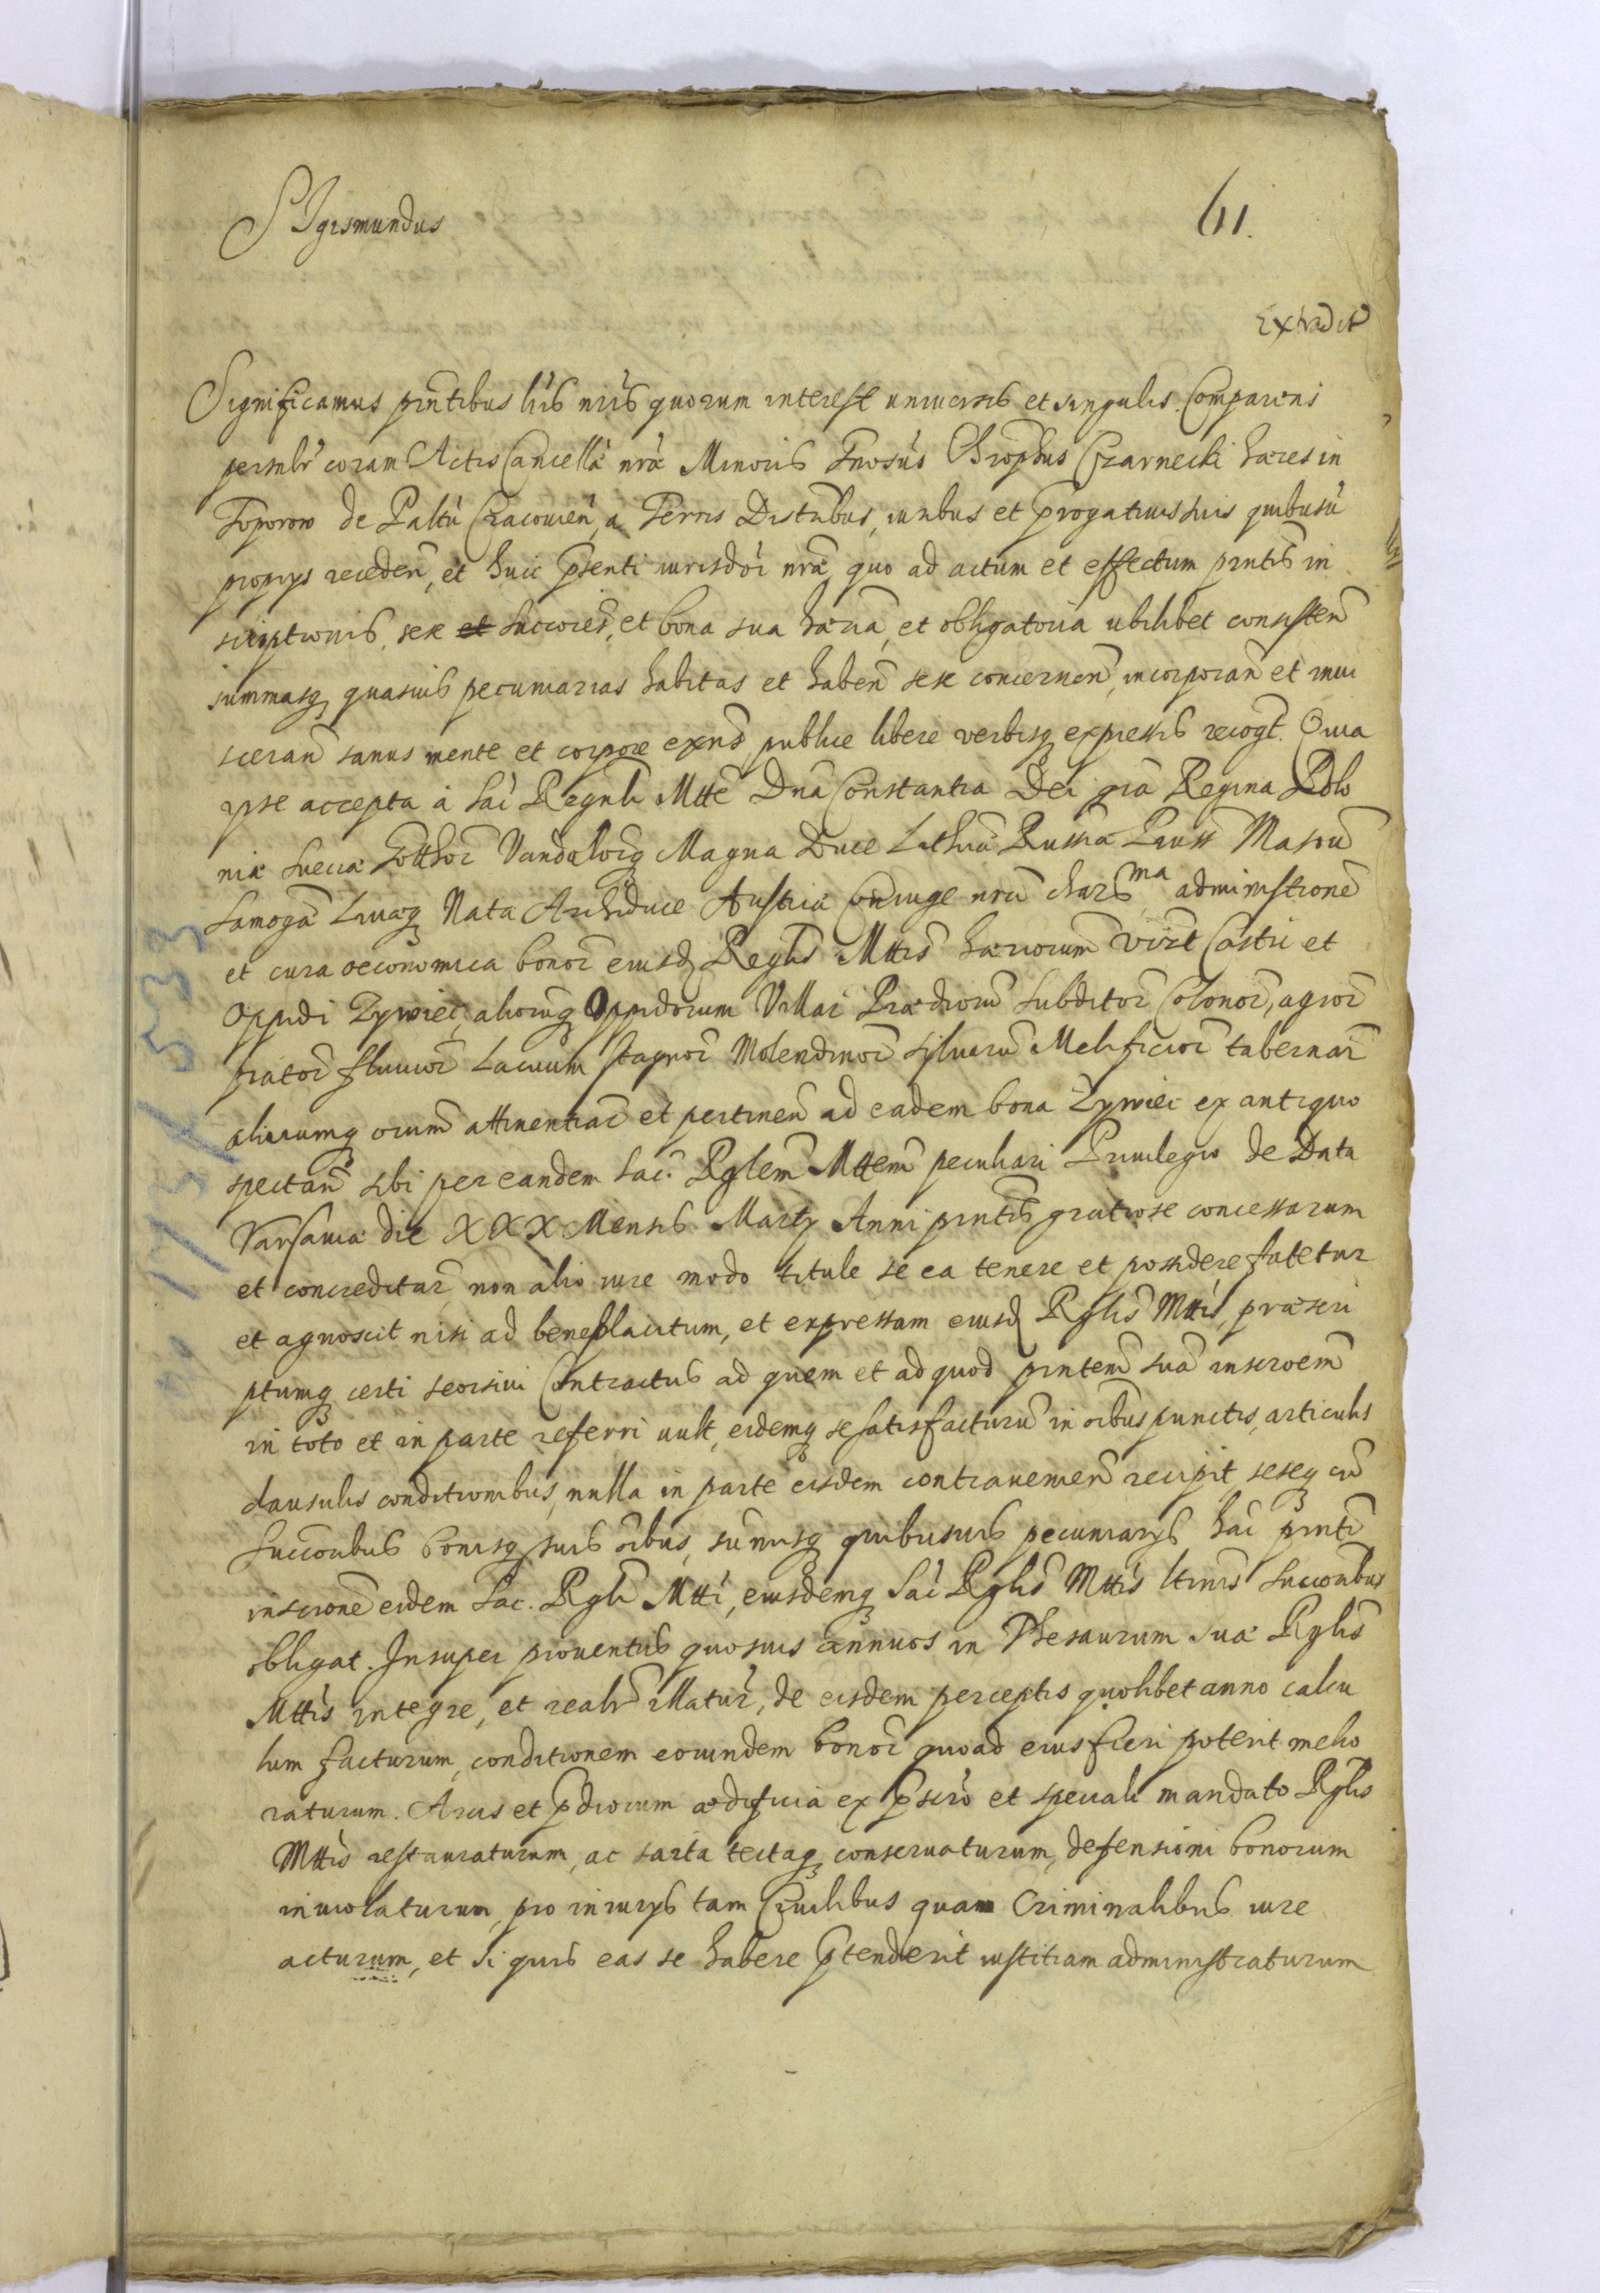 SIgismundus
61.
Extradit
Significamus pñtibus lris nris quorum interest universis et singulis. Comparens
persnlr coram Actis Cancellã nrã Minoris Gnosus Chrophus Czarnecki hæres in
Toporow de Paltu Cracovień, a Terris Distribus, iuribus et progativis suis quibusũ
proprys receden, et huic psenti iurisdõi nrã, quo ad actum et effectum pñtis in
scriptionis, sese et succores, et bona sua hæria, et obligatoria ubilibet consisten
summasq quasuis pecuniarias habitas et haben sese concernen, incorporan et invi
sceran sanus mente et corpore exns publice libere verbisq expressis recogt. Quia
ipse accepta à Sac Regnli Mtte Dna Constantia Dei gra Regina Polo
niæ Sueciæ Gotthor Vandalorq Magna Duce Lithuã Russiæ Pruss Masou
Samogã Livæq Nata Archiduce Austriæ Coniuge nra charisma administione
et cura oeconomica bonor eiusd Reglis Mttis hæriorum vizt Castri et
Oppidi Zywiec, aliorq Oppidorum Villar Prædiorũ subditor Colonor, agror
prator fluvior Lacuum stagnor Molendinor sylvarũ Melificior tabernar
aliarumq oium attinentiar et pertinen ad eadem bona Zywiec ex antiquo
spectan sibi per eandem Sac. Rglem Mttem peculiari Privilegio de Data
Varsaviæ die XXX Mensis Martÿ Anni pntis gratiose concessarum
et concreditar, non alio iure modo titule se ea tenere et possidere fatetur
et agnoscit nisi ad beneplacitum, et expressam eiusd Rglis Mttis, præscri
ptumq certi seorsivi Contractus ad quem et ad quod pntem suã inscroem
in toto et in parte referri vult, eidemq se satisfacturũ in oibus punctis, articulis
clausulis conditionibus, nulla in parte eisdem contravenien recipit, seseq cũ
succoribus bonisq suis oibus, sumisq quibusuis pecuniarys hac pnti
inscrone eidem Sac. Rgli Mtti, eiusdemq Sac Rglis Mttis ltimis succoribus
obligat. Insuper proventus quosuis annuos in Thesaurum Suæ Rglis
Mttis integre, et realr illatur, de eisdem perceptis quolibet anno calcu
lum facturum, conditionem eorundem bonor quoad eius fieri poterit melio
raturum. Arcis et pdiorum ædificia ex pscro et speciali mandato Rglis
Mttis restauraturum, ac sarta tectaq conservaturum, defensioni bonorum
invigilaturum, pro iniurys tam Civilibus quam Criminalibus iure
acturum, et si quis eas se habere ptenderit iustitiam administraturum